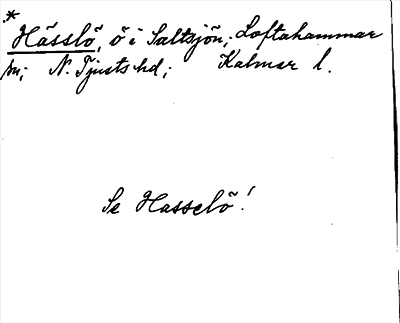 *
Hässlö, ö i Saltsjön; Loftahammar
sn; N. Tjusts hd; Kalmar l.
Se Hasselö!